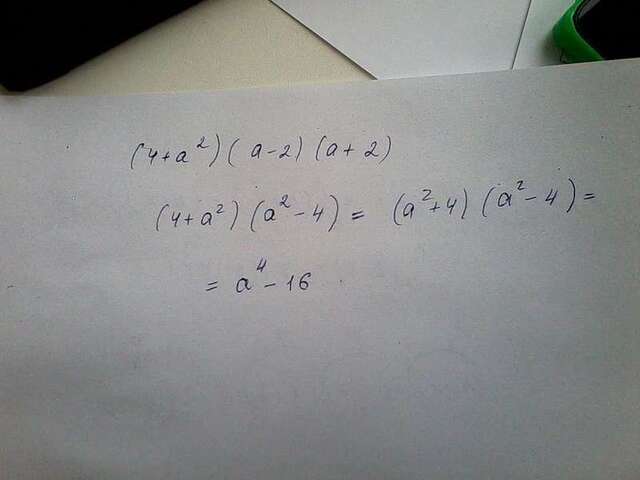 (4+a²)(a-2)(a+2)
(4+a²)(a²-4)= (a²+4)(a²-4)=
=a⁴-16